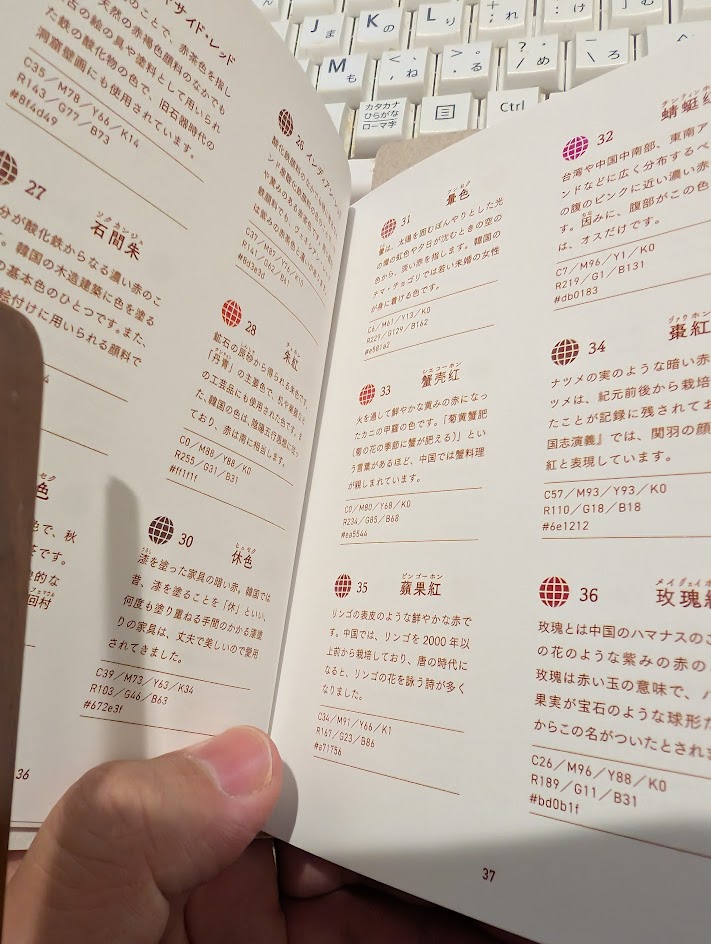 J
ま
K
の
L
り
+
;
れ
*
:
け
M
も
<
,
、
ね
>
.
。
る
?
/
・
め
\
ろ
カタカナ
ひらがな
ローマ字
Ctrl
サイド・レッド
のことで、赤茶色を指し
天然の赤褐色顔料のなかでも
古の絵の具や塗料として用いられ
た鉄の酸化物の色で、旧石器時代の
洞窟壁画にも使用されています。
C35/M78/Y66/K14
R143/G77/B73
#8f4d49
26
C37/M87/Y76/K10
R141/G62/B61
#8d3e3d
27
ソクカンジュ
石間朱
分が酸化鉄からなる濃い赤のこ
す。韓国の木造建築に色を塗る
の基本色のひとつです。また、
絵付けに用いられる顔料で
28
チュホン
朱紅
鉱石の辰砂から得られる朱色です。
「丹青」の主要色で、机や箪笥など
の工芸品にも使用された色です。ま
た、韓国の色は、陰陽五行思想に沿っ
ており、赤は南に相当します。
C0/M88/Y88/K0
R255/G31/B31
#ff1f1f
色
色で、秋
です。
的な
回村
30
ヒュセク
休色
漆を塗った家具の暗い赤。韓国では
昔、漆を塗ることを「休」といい、
何度も塗り重ねる手間のかかる漆塗
りの家具は、丈夫で美しいので愛用
されてきました。
C39/M73/Y63/K34
R103/G46/B63
#672e3f
36
31
フンセク
暈色
暈は、太陽を囲むぼんやりとした光
の環の虹色や夕日が沈むときの空の
色から、淡い赤を指します。韓国の
チマ・チョゴリでは若い未婚の女性
が身に着ける色です。
C6/M61/Y13/K0
R229/G129/B162
#e581a2
32
蜻蜓紅
台湾や中国中南部、東南ア
ンドなどに広く分布するベ
の腹のピンクに近い濃い赤
す。因みに、腹部がこの色
は、オスだけです。
C7/M96/Y1/K0
R219/G1/B131
#db0183
33
シエコーホン
蟹壳紅
火を通して鮮やかな黄みの赤になっ
たカニの甲羅の色です。「菊黄蟹肥
(菊の花の季節に蟹が肥える)」とい
う言葉があるほど、中国では蟹料理
が親しまれています。
C0/M80/Y68/K0
R234/G85/B68
#ea5544
34
ヅァウホン
棗紅
ナツメの実のような暗い赤
ツメは、紀元前後から栽培
たことが記録に残されてお
国志演義』では、関羽の顔
紅と表現しています。
C57/M93/Y93/K0
R110/G18/B18
#6e1212
35
ピンゴーホン
蘋果紅
リンゴの表皮のような鮮やかな赤で
す。中国では、リンゴを2000年以
上前から栽培しており、唐の時代に
なると、リンゴの花を詠う詩が多く
なりました。
C34/M91/Y66/K1
R167/G23/B86
#a71756
36
メイグェイホ
玫瑰紅
玫瑰とは中国のハマナスのこ
の花のような紫みの赤の
玫瑰は赤い玉の意味で、ハ
果実が宝石のような球形だ
からこの名がついたとされま
C26/M96/Y88/K0
R189/G11/B31
#bd0b1f
37